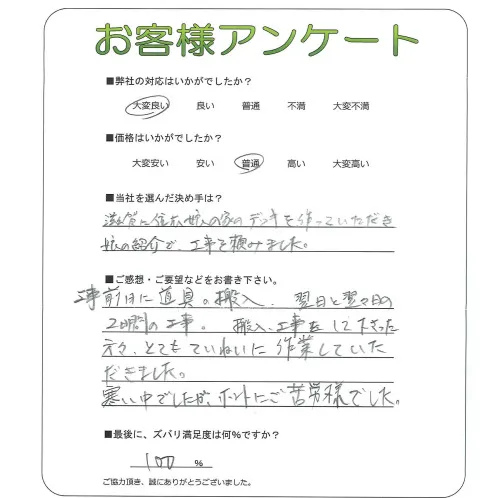 お客様アンケート
■弊社の対応はいかがでしたか？
大変良い 良い 普通 不満 大変不満
■価格はいかがでしたか？
大変安い 安い 普通 高い 大変高い
■当社を選んだ決め手は？
滋賀に住む娘の家のデッキを作っていただき
娘の紹介で、工事を頼みました。
■ご感想・ご要望などをお書き下さい。
工事前日に道具の搬入、翌日と翌々日の
2日間の工事。搬入、工事をして下さった
方々、とてもていねいに作業していた
だきました。
寒い中でしたが、ホントにご苦労様でした。
■最後に、ズバリ満足度は何％ですか？
100 %
ご協力頂き、誠にありがとうございました。